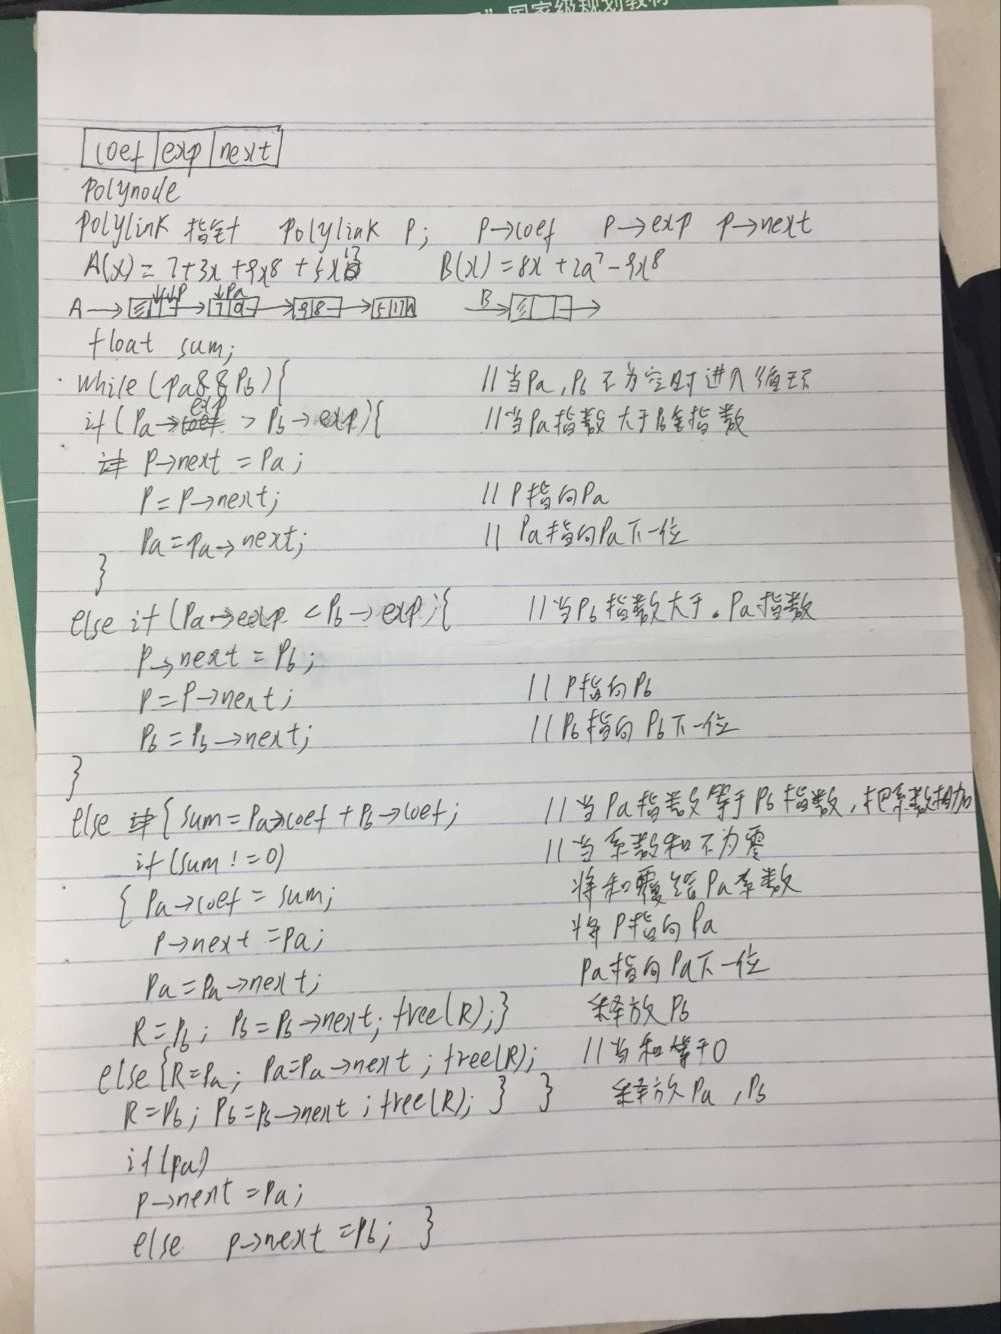 "国家级规划教材
coef exp next
Polynode
Polylink 指针 Polylink P; P→coef P→exp P→next
A(x)=7+3x+9x8+5x17 B(x)=8x+2a⁷-9x8
P Pa
A→ 7 0 → 9 8 → 5 17 ∧ B→
float sum;
while(Pa&&Pb){ //当Pa,Pb不为空时进入循环
if(Pa→exp > Pb→exp){ //当Pa指数大于Pb指数
P→next=Pa;
P=P→next; //P指向Pa
Pa=Pa→next; //Pa指向Pa下一位
}
else if(Pa→exp<Pb→exp){ //当Pb指数大于。Pa指数
P→next=Pb;
P=P→next; //P指向Pb
Pb=Pb→next; //Pb指向Pb下一位
}
else {sum=Pa→coef+Pb→coef; //当Pa指数等于Pb指数,把系数相加
if(sum!=0) //当系数和不为零
{Pa→coef=sum; 将和覆给Pa系数
P→next=Pa; 将P指向Pa
Pa=Pa→next; Pa指向Pa下一位
R=Pb; Pb=Pb→next; free(R);} 释放Pb
else{R=Pa; Pa=Pa→next; free(R); //当和等于0
R=Pb; Pb=Pb→next; free(R); } } 释放Pa,Pb
if(Pa)
P→next=Pa;
else P→next=Pb; }